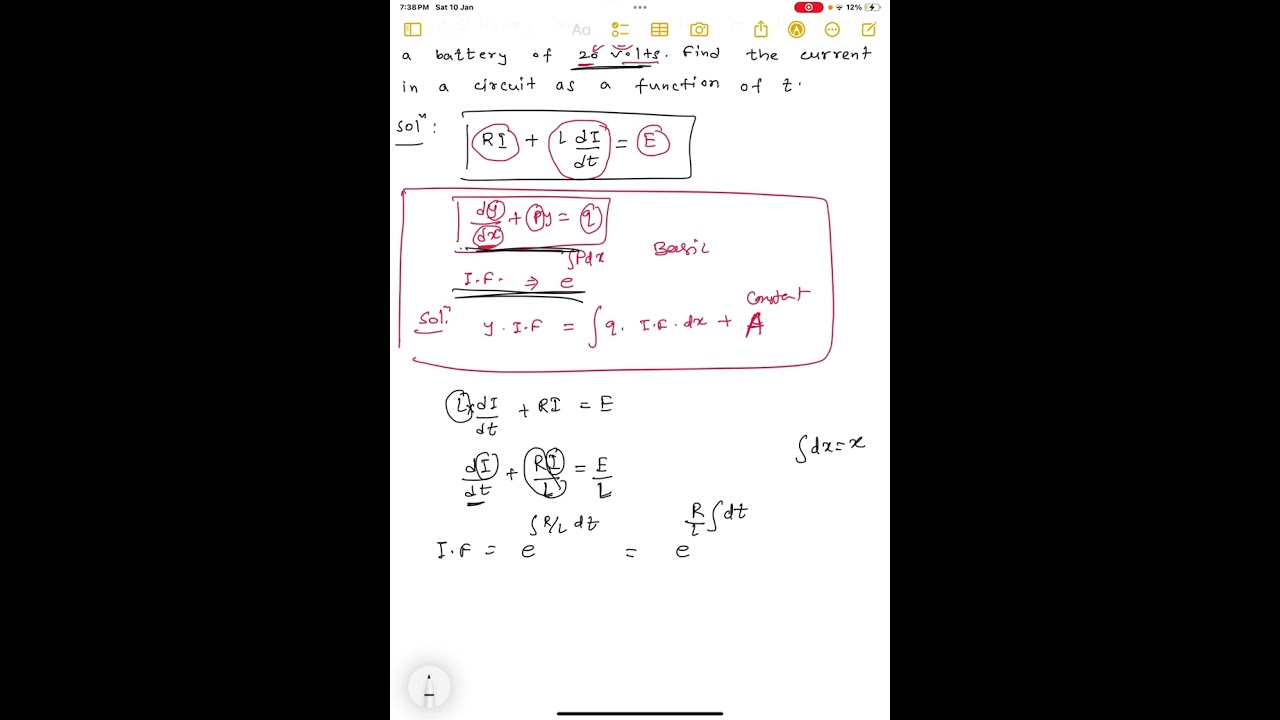 7:38 PM Sat 10 Jan
12%
Aa
a battery of 20 volts. Find the current
in a circuit as a function of t.
Solⁿ:
RI + L dI/dt = E
dy/dx + Py = q
Basic
I.F. ⇒ e^∫Pdx
Constant
Solⁿ. y. I.F = ∫ q. I.F. dx + A
L x dI/dt + RI = E
∫dx = x
dI/dt + RI/L = E/L
I.F = e^∫R/L dt = e^R/L ∫dt